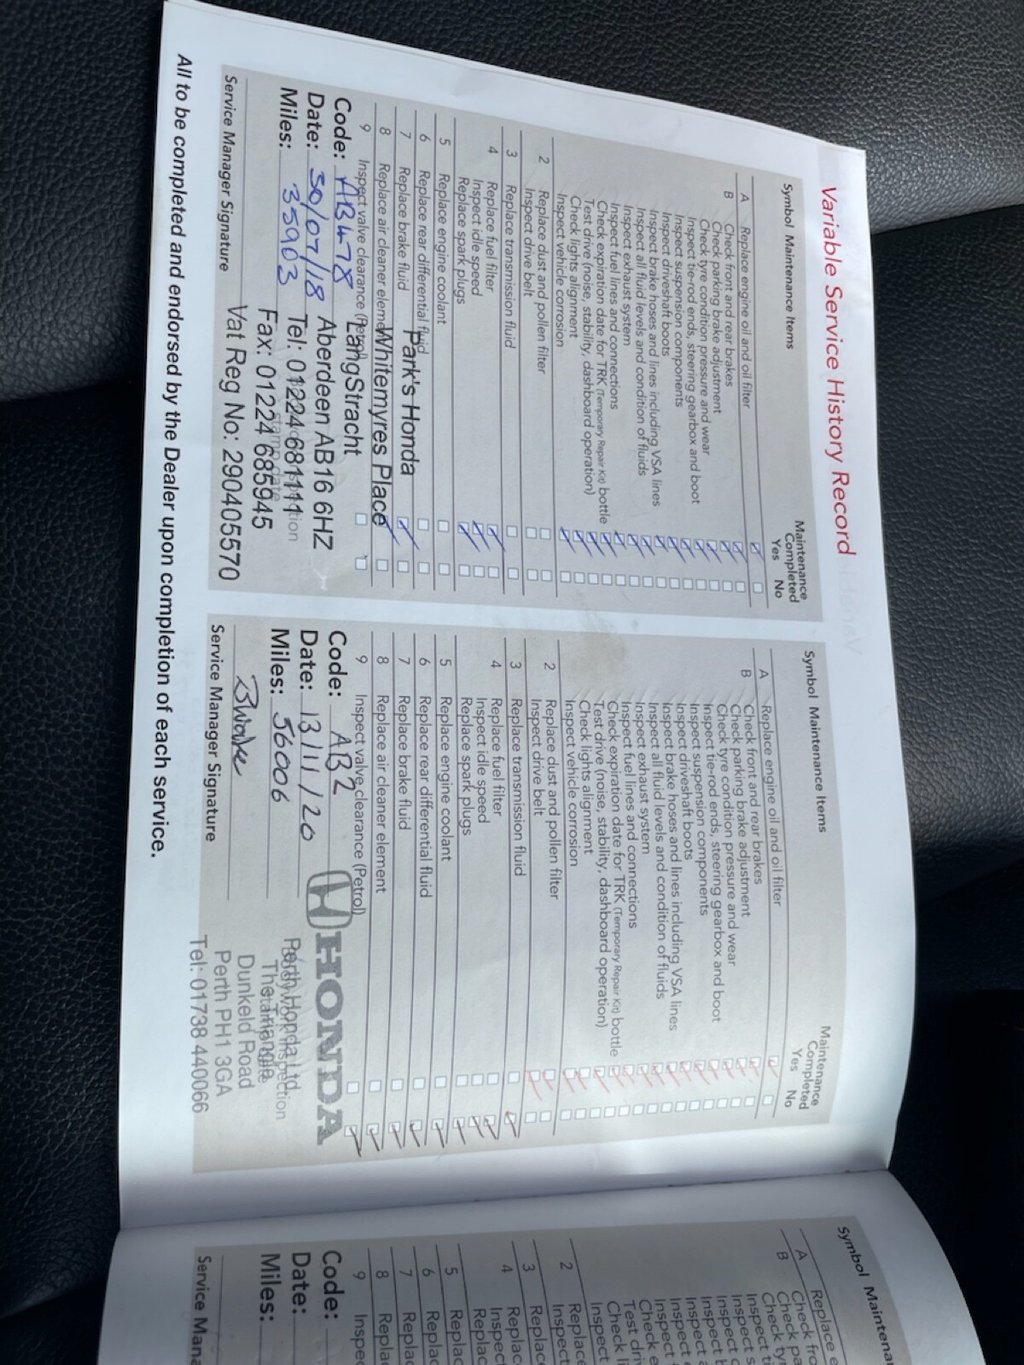 Variable Service History Record
Symbol Maintenance Items
Maintenance
Completed
Yes No
A Replace engine oil and oil filter
B Check front and rear brakes
Check parking brake adjustment
Check tyre condition pressure and wear
Inspect tie-rod ends, steering gearbox and boot
Inspect suspension components
Inspect driveshaft boots
Inspect brake hoses and lines including VSA lines
Inspect all fluid levels and condition of fluids
Inspect exhaust system
Inspect fuel lines and connections
Check expiration date for TRK (Temporary Repair Kit) bottle
Test drive (noise, stability, dashboard operation)
Check lights alignment
Inspect vehicle corrosion
2 Replace dust and pollen filter
Inspect drive belt
3 Replace transmission fluid
4 Replace fuel filter
Inspect idle speed
Replace spark plugs
5 Replace engine coolant
6 Replace rear differential fluid
7 Replace brake fluid
8 Replace air cleaner element
9 Inspect valve clearance (Petrol)
Code: AB478
Date: 30/07/18
Miles: 35903
Service Manager Signature
Park's Honda
Whitemyres Place
LangStracht
Aberdeen AB16 6HZ
Tel: 01224 681111
Fax: 01224 685945
Vat Reg No: 290405570
Symbol Maintenance Items
Maintenance
Completed
Yes No
A Replace engine oil and oil filter
B Check front and rear brakes
Check parking brake adjustment
Check tyre condition pressure and wear
Inspect tie-rod ends, steering gearbox and boot
Inspect suspension components
Inspect driveshaft boots
Inspect brake hoses and lines including VSA lines
Inspect all fluid levels and condition of fluids
Inspect exhaust system
Inspect fuel lines and connections
Check expiration date for TRK (Temporary Repair Kit) bottle
Test drive (noise, stability, dashboard operation)
Check lights alignment
Inspect vehicle corrosion
2 Replace dust and pollen filter
Inspect drive belt
3 Replace transmission fluid
4 Replace fuel filter
Inspect idle speed
Replace spark plugs
5 Replace engine coolant
6 Replace rear differential fluid
7 Replace brake fluid
8 Replace air cleaner element
9 Inspect valve clearance (Petrol)
Code: AB2
Date: 13/11/20
Miles: 56006
Service Manager Signature
HONDA
Perth Honda Ltd
The Triangle
Dunkeld Road
Perth PH1 3GA
Tel: 01738 440066
All to be completed and endorsed by the Dealer upon completion of each service.
Symbol
A Replace
B Check
Check
2 Replace
Inspect
3
4
5
6
7
8
9
Code:
Date:
Miles:
Service